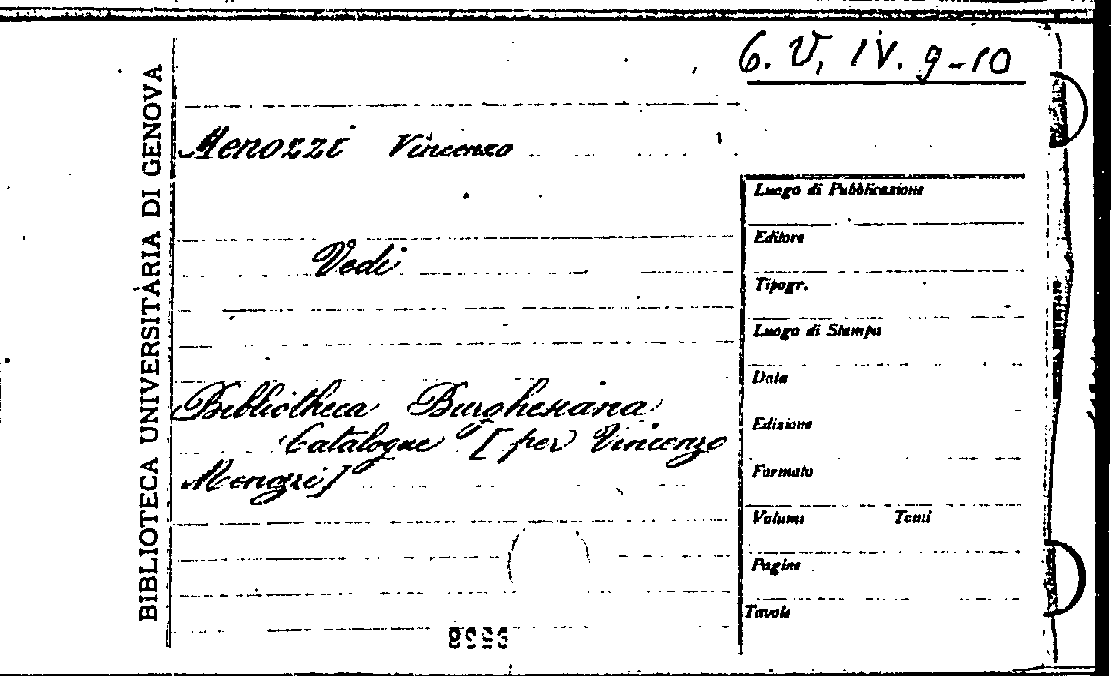 6. V. IV. 9-10
BIBLIOTECA UNIVERSITÀRIA DI GENOVA
Menozzi Vincenzo
Vedi
Bibliotheca Burghesiana
Catalogue [per Vincenzo
Menozzi]
Luogo di Pubblicazione
Editore
Tipogr.
Luogo di Stampa
Data
Edizione
Formato
Volumi Tomi
Pagine
Tavole